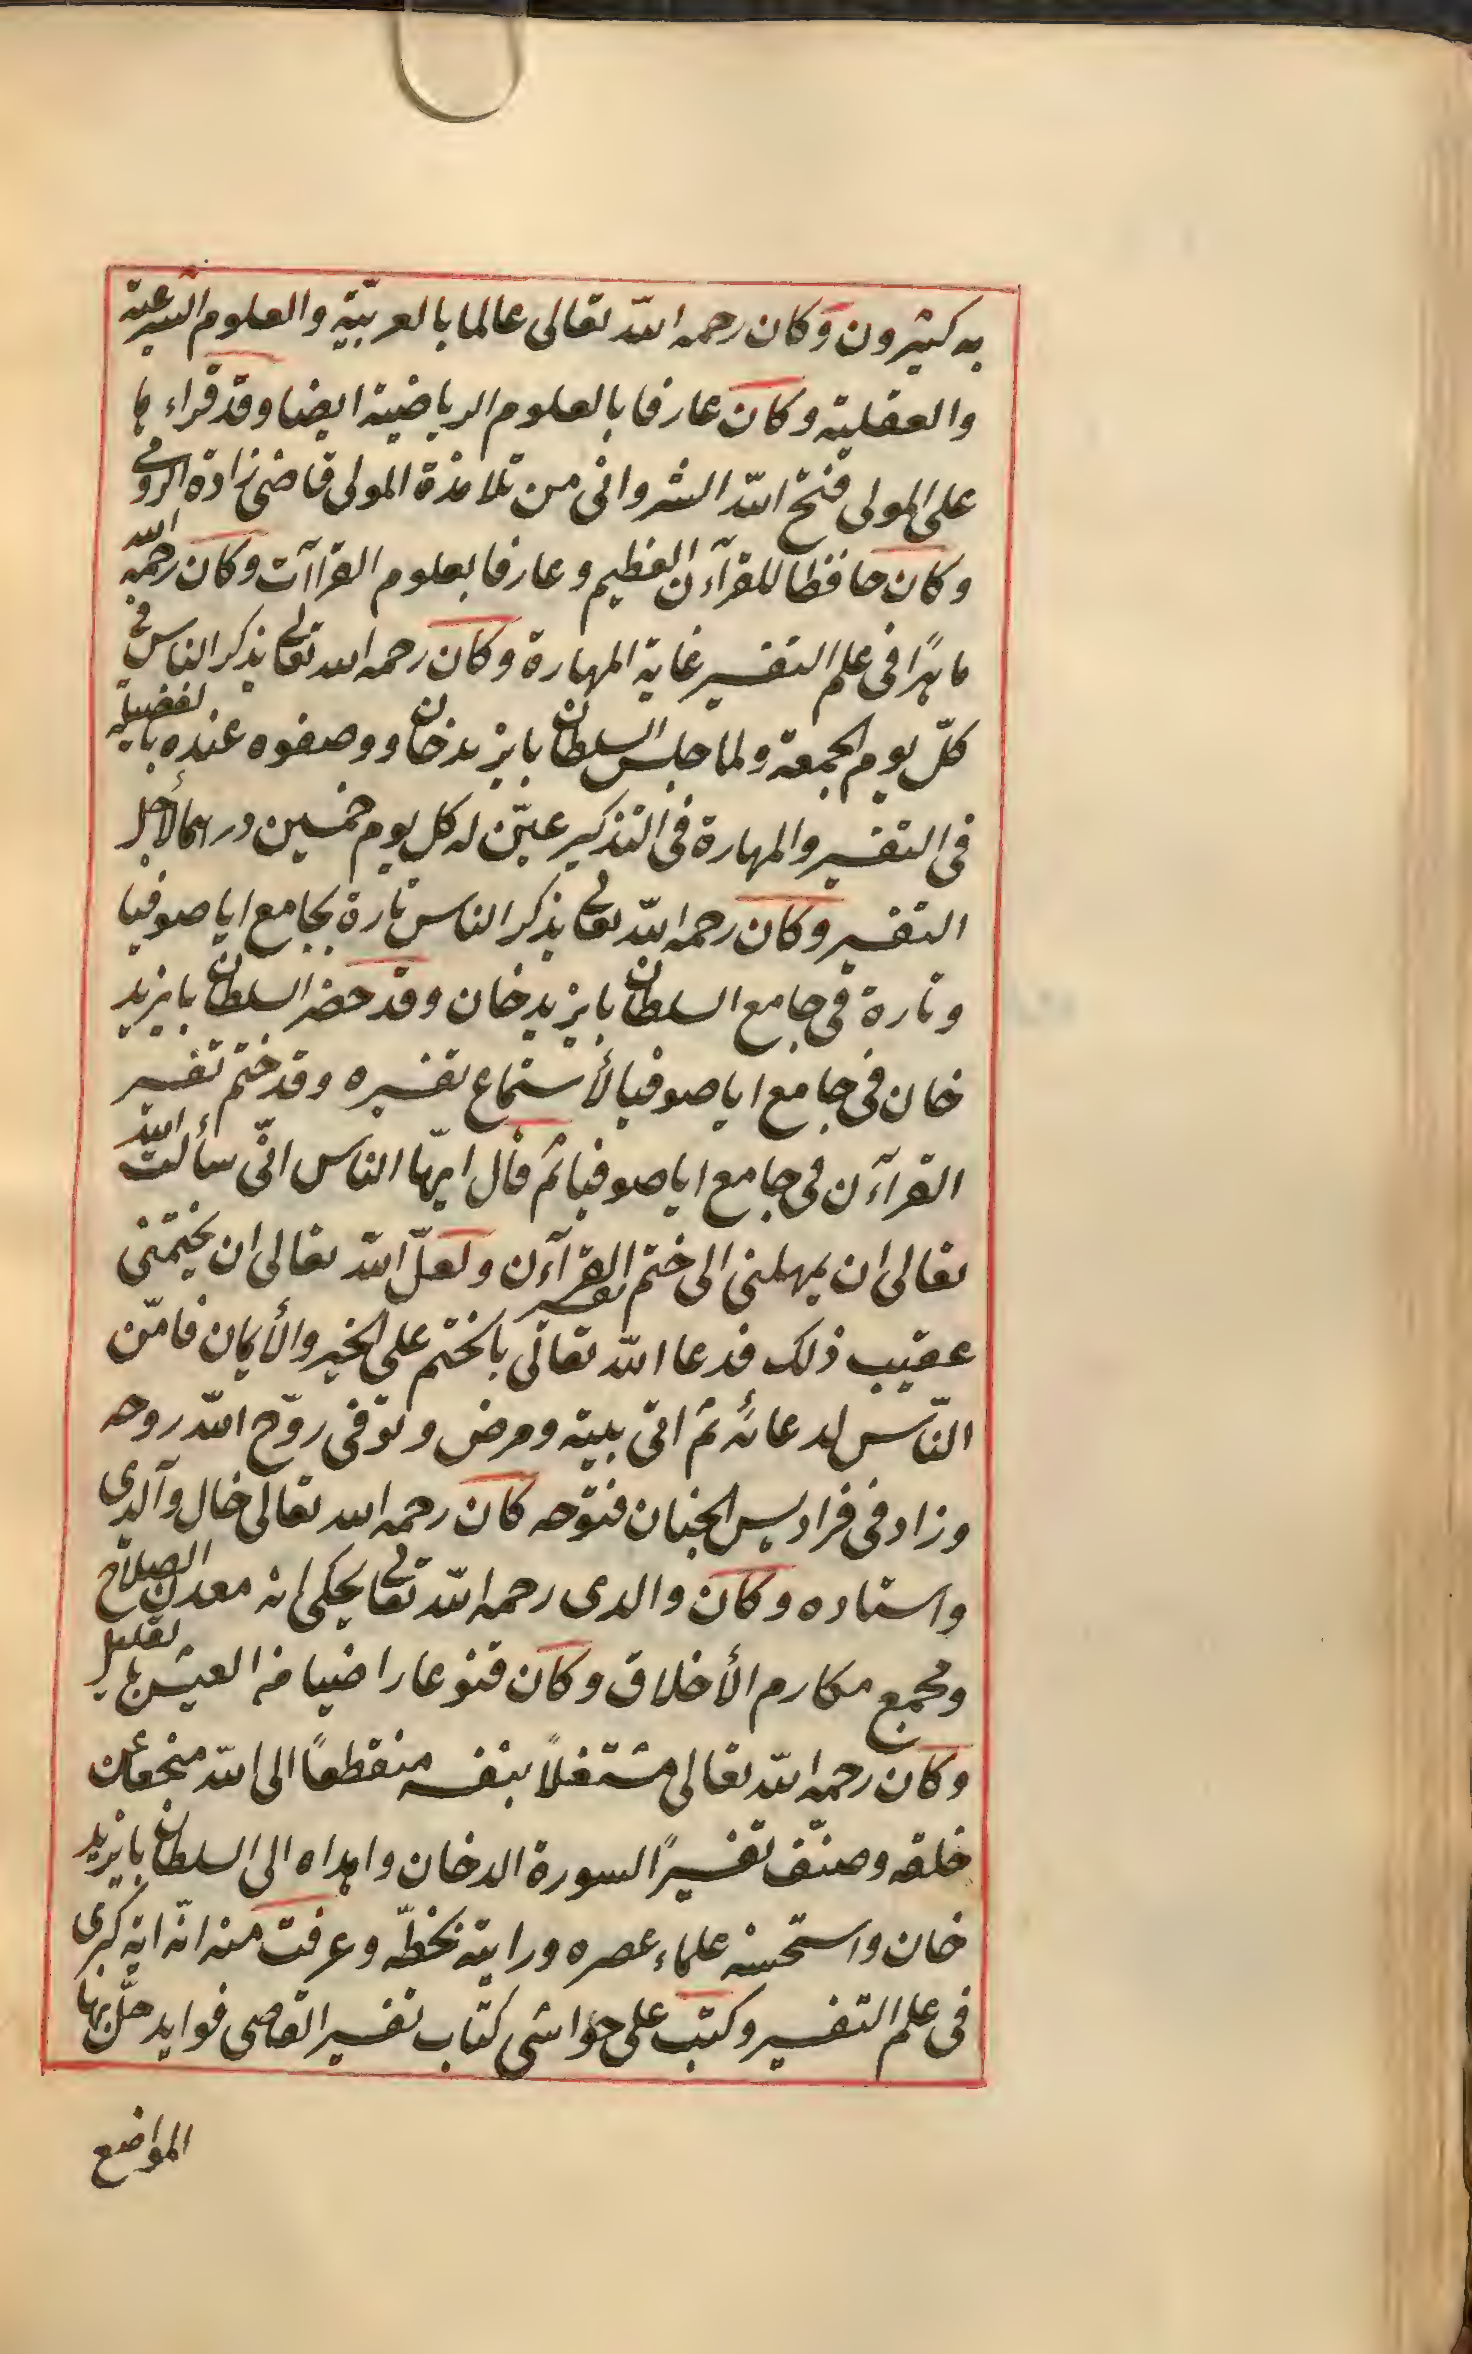 به كثيرون وكان رحمه الله تعالى عالما بالعربيّة والعلوم الشرعية
والعقلية وكان عارفا بالعلوم الرياضية ايضا وقد قراء ها
على المولى فتح الله الشروانى من تلامذة المولى قاضى زاده الرومى
وكان حافظا للقرآءن العظيم وعارفا بعلوم القراآت وكان رحمه الله
ماهرًا فى علم التفسير غاية المهارة وكان رحمه الله تعالى يذكر الناس فى
كلّ يوم الجمعة ولما جلس السلطان بايزيد خان ووصفوه عنده بالفضيلة
فى التفسير والمهارة فى التذكير عيّن له كل يوم خمسين درهما لأجل
التفسير وكان رحمه الله تعالى يذكر الناس تارة بجامع اياصوفيا
وتارة فى جامع السلطان بايزيد خان وقد حضر السلطان بايزيد
خان فى جامع اياصوفيا لأستماع تفسيره وقد ختم تفسير
القرآءن فى جامع اياصوفيا ثم قال ايّها الناس انّى سألت الله
تعالى ان يمهلنى الى ختم تفسير القرآءن ولعلّ الله تعالى ان يختمنى
عقيب ذلك فدعا الله تعالى بالختم على الخير والأيمان فامّن
النّاس لدعائه ثم اتى بيته ومرض وتوفى روّح الله روحه
وزاد فى فراديس الجنان فتوحه كان رحمه الله تعالى خال والدى
واستاده وكان والدى رحمه الله تعالى يحكى انه معدن الصلاح
ومجمع مكارم الأخلاق وكان قنوعا راضيا من العيش بالقليل
وكان رحمه الله تعالى مشتغلاً بنفسه منقطعًا الى الله منجمعا عن
خلقه وصنّف تفسيرًا لسورة الدخان واهداه الى السلطان بايزيد
خان واستحسنه علماء عصره ورايته بخطّه وعرفت منه انّه اية كبرى
فى علم التفسير وكتب على حواشى كتاب تفسير القاضى فوايد حلّ بها
المواضع